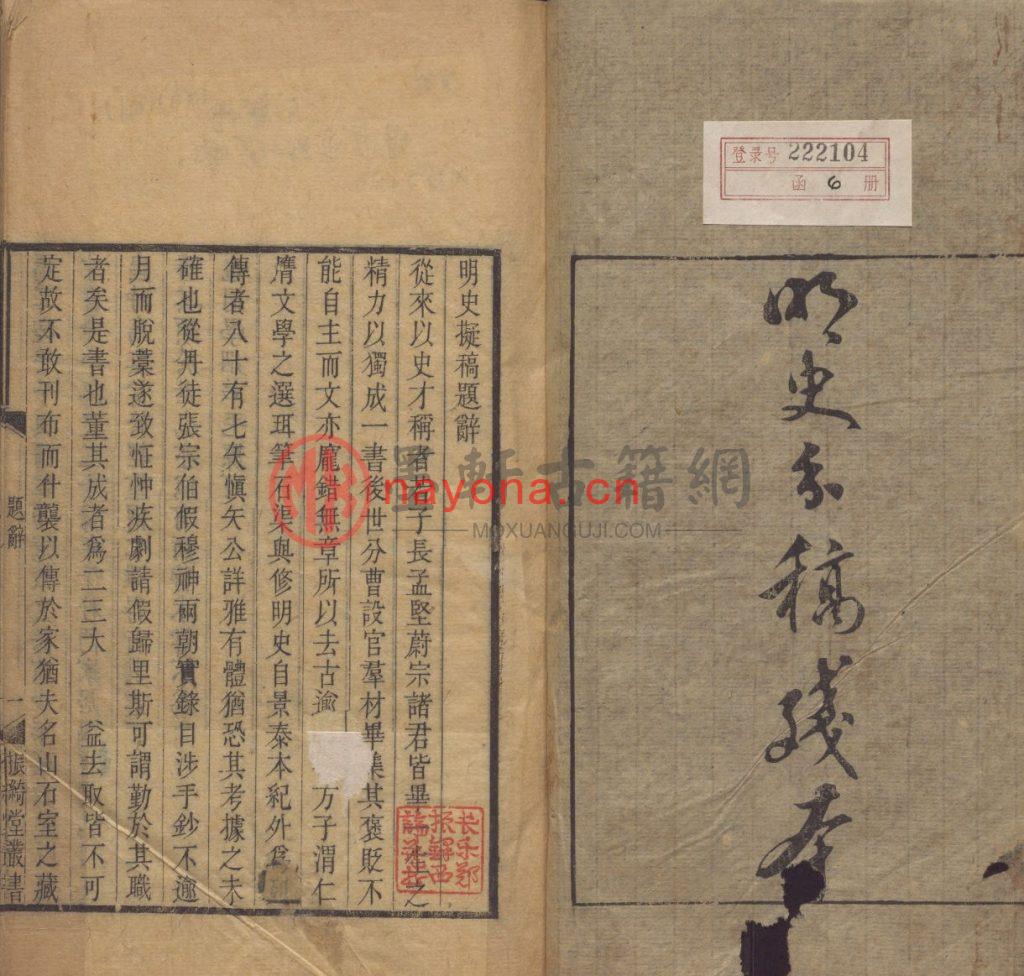 登录号 222104
函 6 册
明史分稿残本
明史擬稿題辭
從來以史才稱者若子長孟堅蔚宗諸君皆畢生之
精力以獨成一書後世分曹設官羣材畢集其褒貶不
能自主而文亦龐錯無章所以去古逾 方子渭仁
膺文學之選珥筆石渠與修明史自景泰本紀外爲列
傳者八十有七矢愼矢公詳雅有體猶恐其考據之未
確也從丹徒張宗伯假穆神兩朝實錄目涉手鈔不逾
月而脫藁遂致怔忡疾劇請假歸里斯可謂勤於其職
者矣是書也董其成者爲二三大 益去取皆不可
定故不敢刊布而什襲以傳於家猶夫名山石室之藏
題辭
一
振綺堂叢書
长乐郑
振鐸西
諦藏書
墨軒古籍網
nayona.cn
MOXUANGUJI.COM